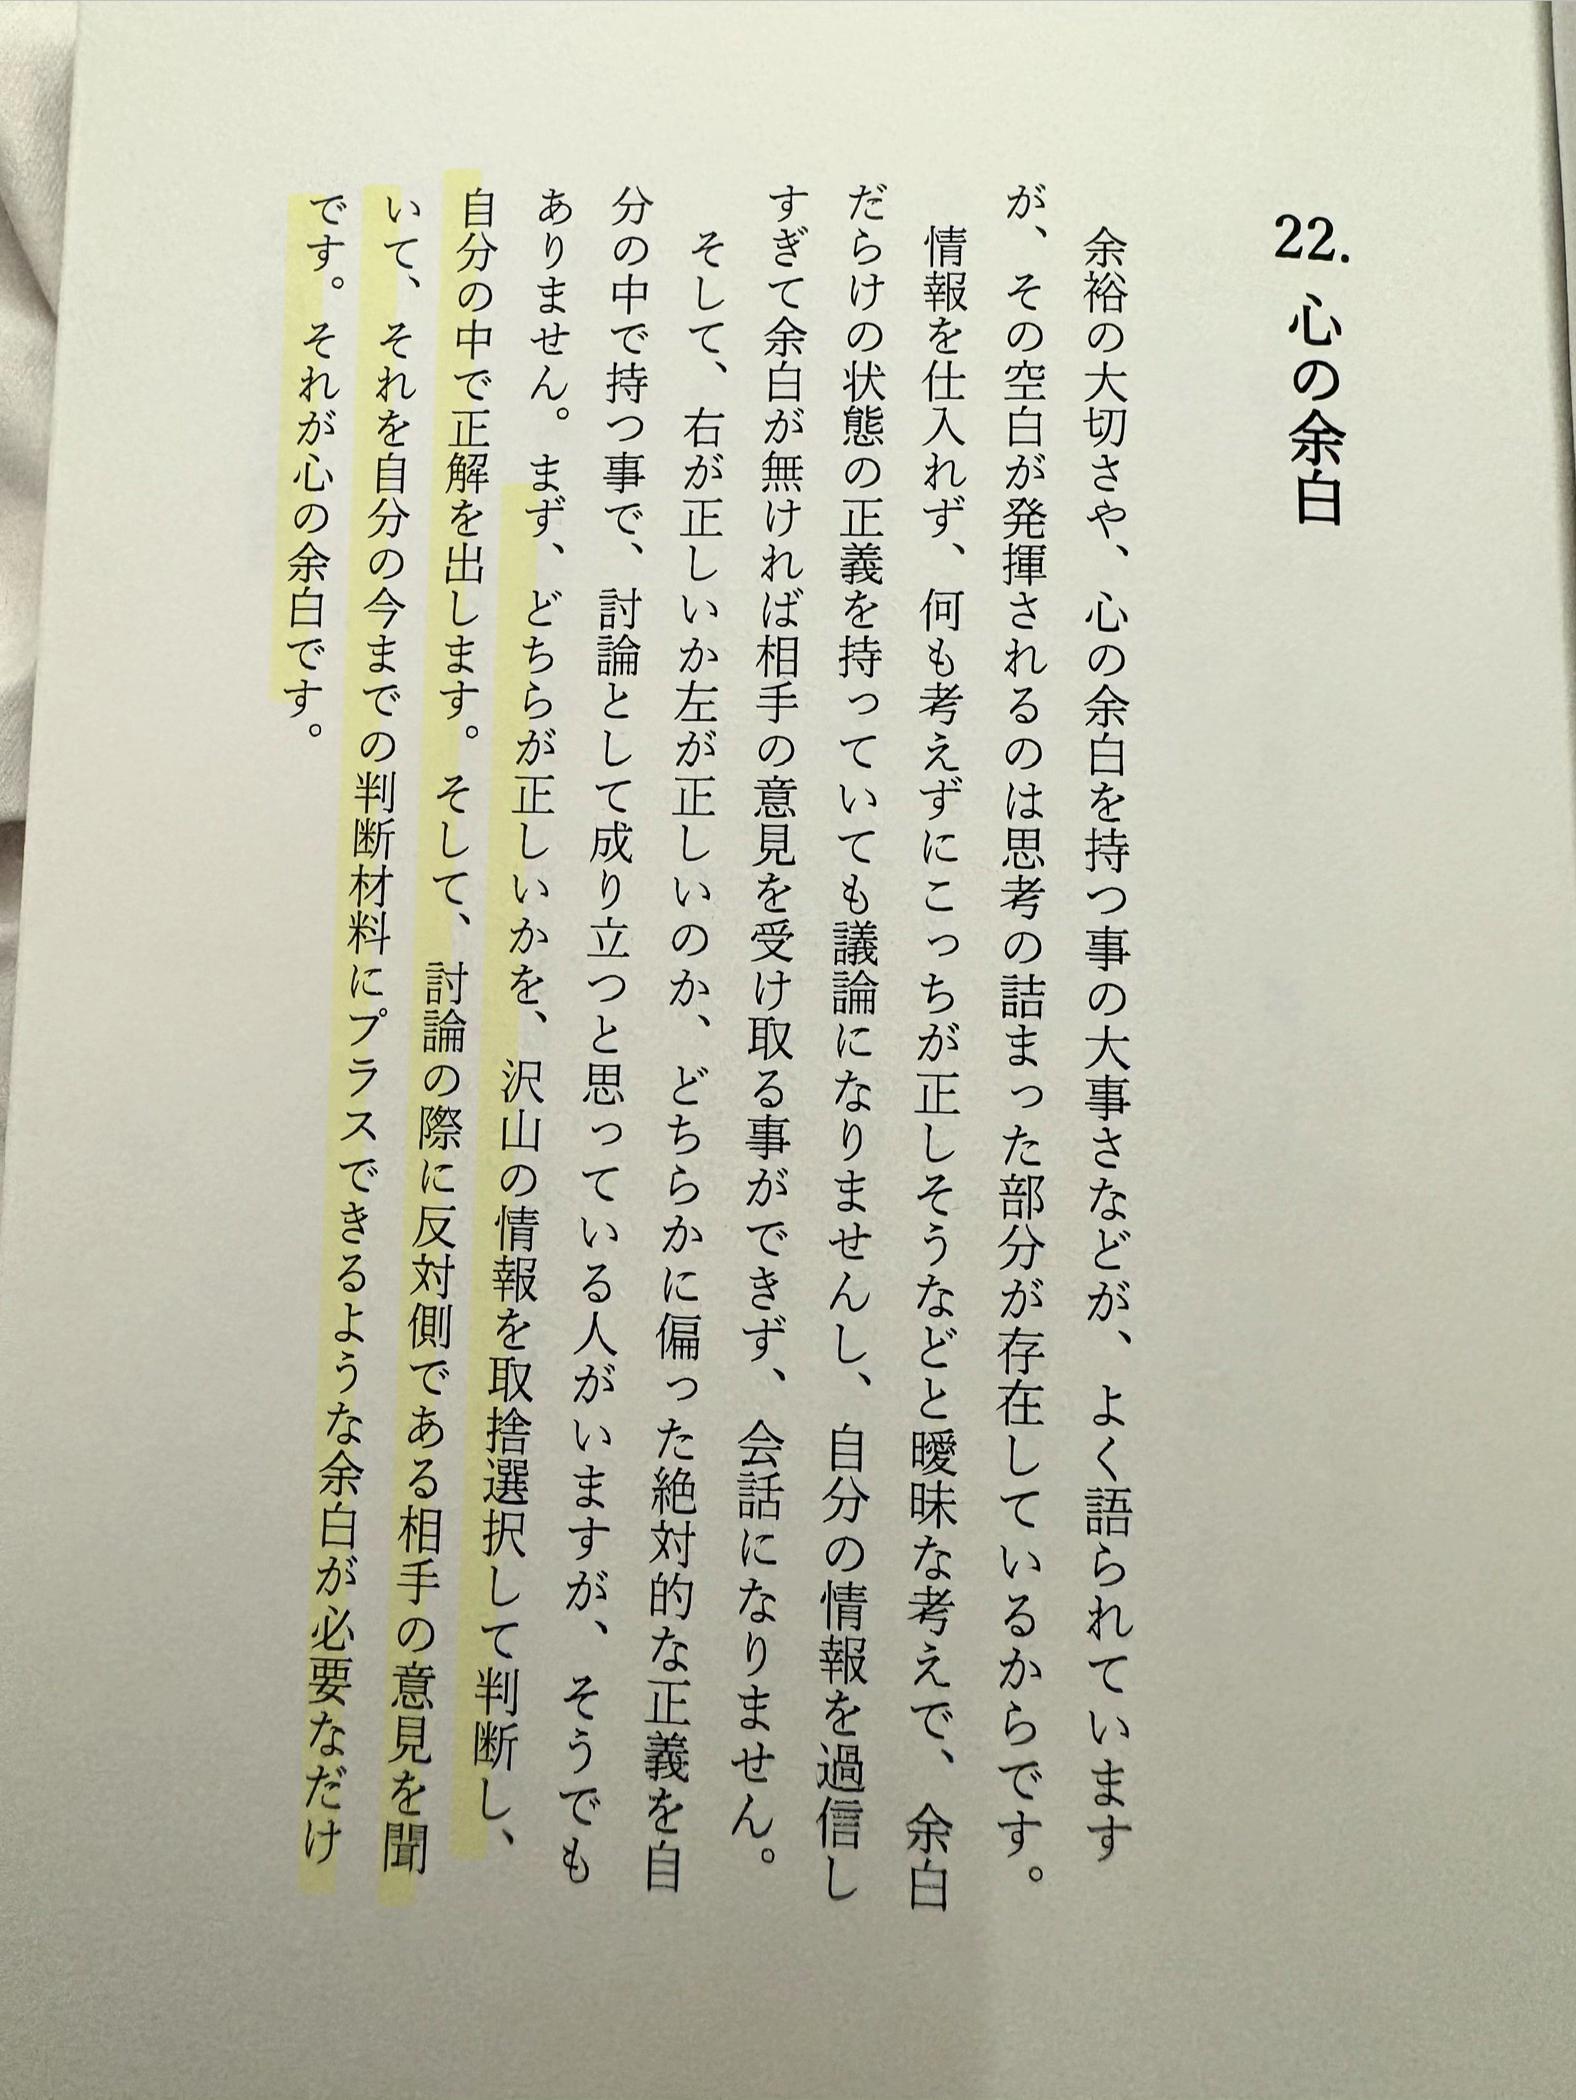 22. 心の余白
余裕の大切さや、心の余白を持つ事の大事さなどが、よく語られています
が、その空白が発揮されるのは思考の詰まった部分が存在しているからです。
情報を仕入れず、何も考えずにこっちが正しそうなどと曖昧な考えで、余白
だらけの状態の正義を持っていても議論になりませんし、自分の情報を過信し
すぎて余白が無ければ相手の意見を受け取る事ができず、会話になりません。
そして、右が正しいか左が正しいのか、どちらかに偏った絶対的な正義を自
分の中で持つ事で、討論として成り立つと思っている人がいますが、そうでも
ありません。まず、どちらが正しいかを、沢山の情報を取捨選択して判断し、
自分の中で正解を出します。そして、討論の際に反対側である相手の意見を聞
いて、それを自分の今までの判断材料にプラスできるような余白が必要なだけ
です。それが心の余白です。